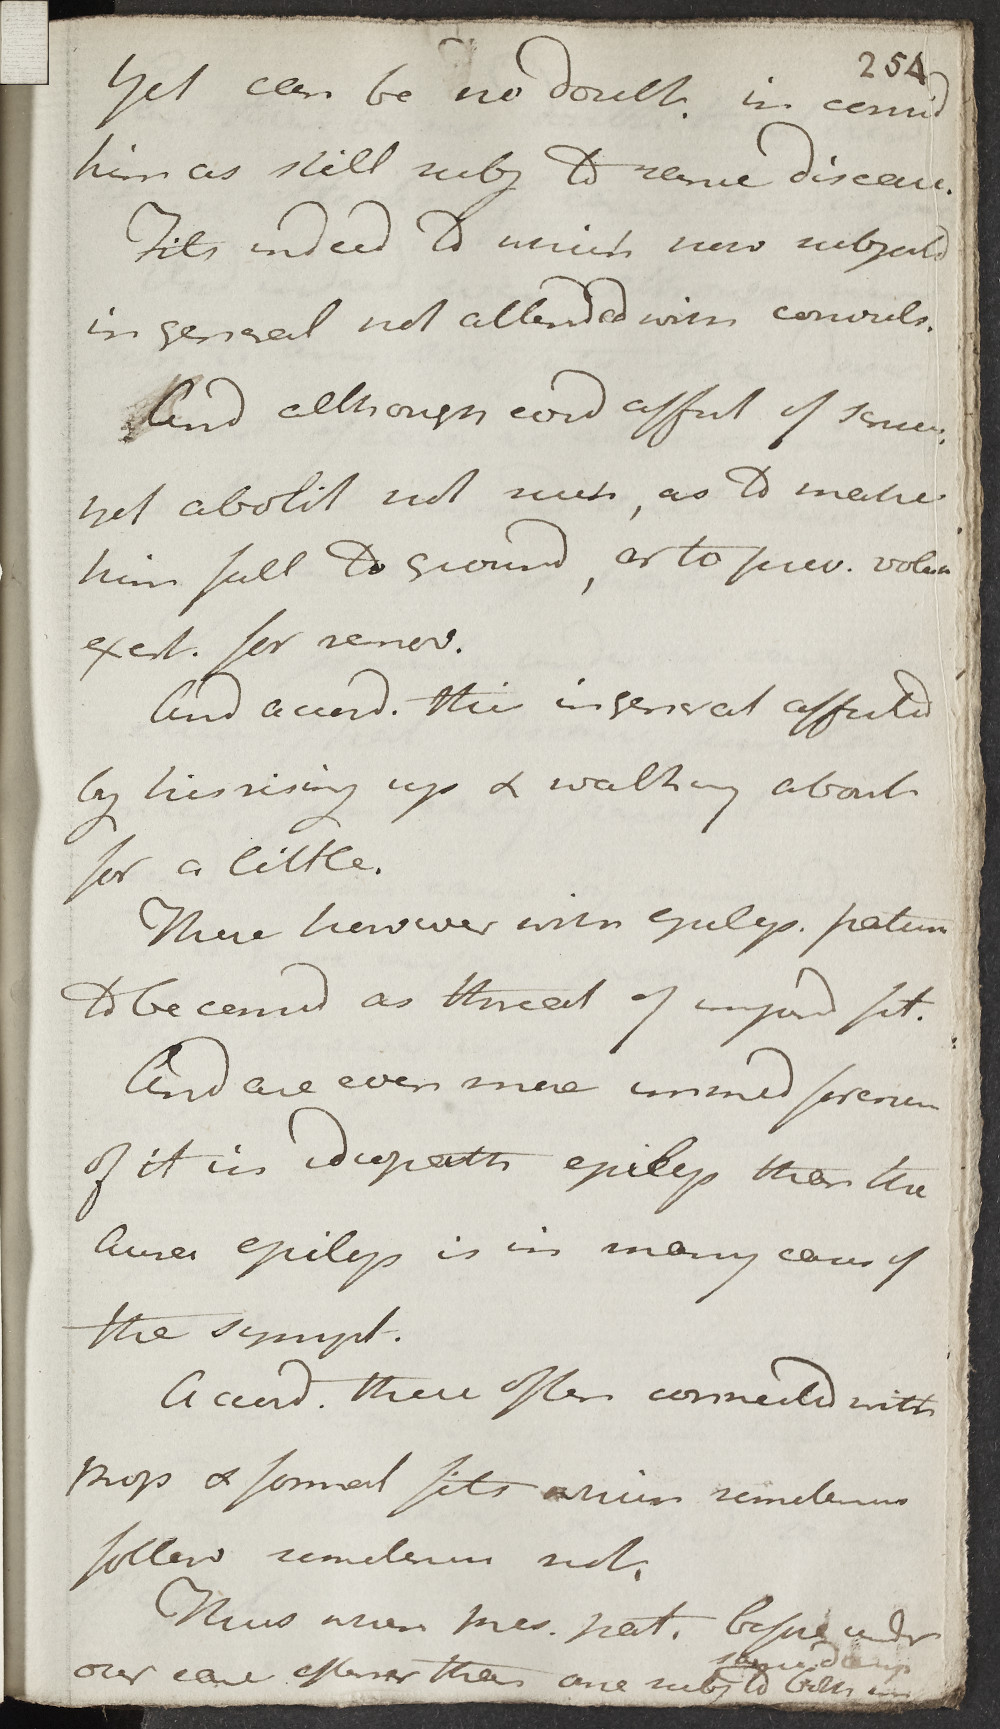 254
Yet can be no doubt. in consid
him as still subj to same disease.
Fits indeed to which now subjected
in general not attended with convuls.
And although cord affect of
yet abolit not such, as to make
him fall to ground, or to prev. volun
exert. for remov.
And accord. this in general affected
by his rising up & walking about
for a little.
These however with epilep. patien
to be consid as threat of fit.
And are even more immed forerun
of it in idiopath epilep than the
Aura epilep is in many cases of
the sympt.
Accord. these often connected with
prop & formal fits which sometimes
follow sometimes not.
Thus when pres. pat. before under
our care oftener than one subj to both
same day